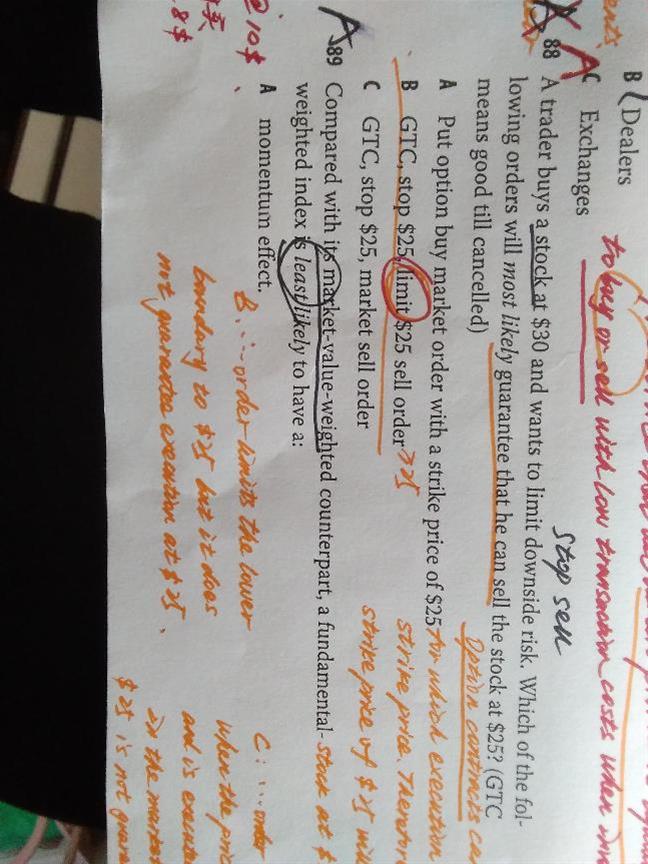 B Dealers
C Exchanges
to buy or sell with low transaction costs when
A
stop sell
88 A trader buys a stock at $30 and wants to limit downside risk. Which of the fol-
lowing orders will most likely guarantee that he can sell the stock at $25? (GTC
means good till cancelled)
Option contracts
A Put option buy market order with a strike price of $25
for which execution
B GTC, stop $25, limit $25 sell order
>25
strike price. Therefore
C GTC, stop $25, market sell order
strike price of $25 will
A
89 Compared with its market-value-weighted counterpart, a fundamental-
stock at $
weighted index is least likely to have a:
A momentum effect.
@10$
8$
B: ... order limits the lower
boundary to $25 but it does
not guarantee execution at $25.
C: ... order
when the pric
and is execute
in the market
$25 is not guara